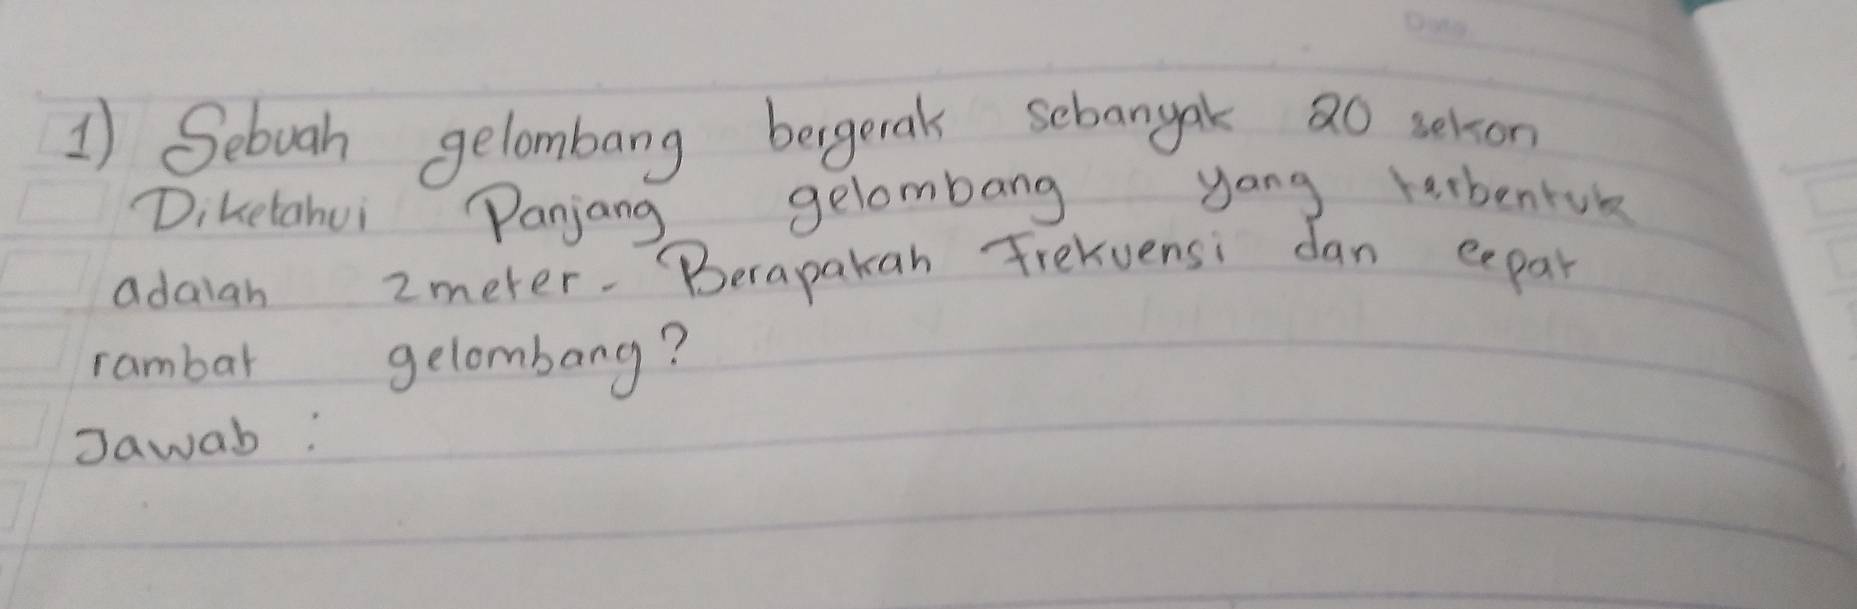 Date
1) Sebuah gelombang bergerak sebanyak 20 sekon
Diketahui Panjang gelombang yang terbentuk
adalah 2 meter. Berapakah Frekuensi dan cepat
rambat gelombang?
Jawab :